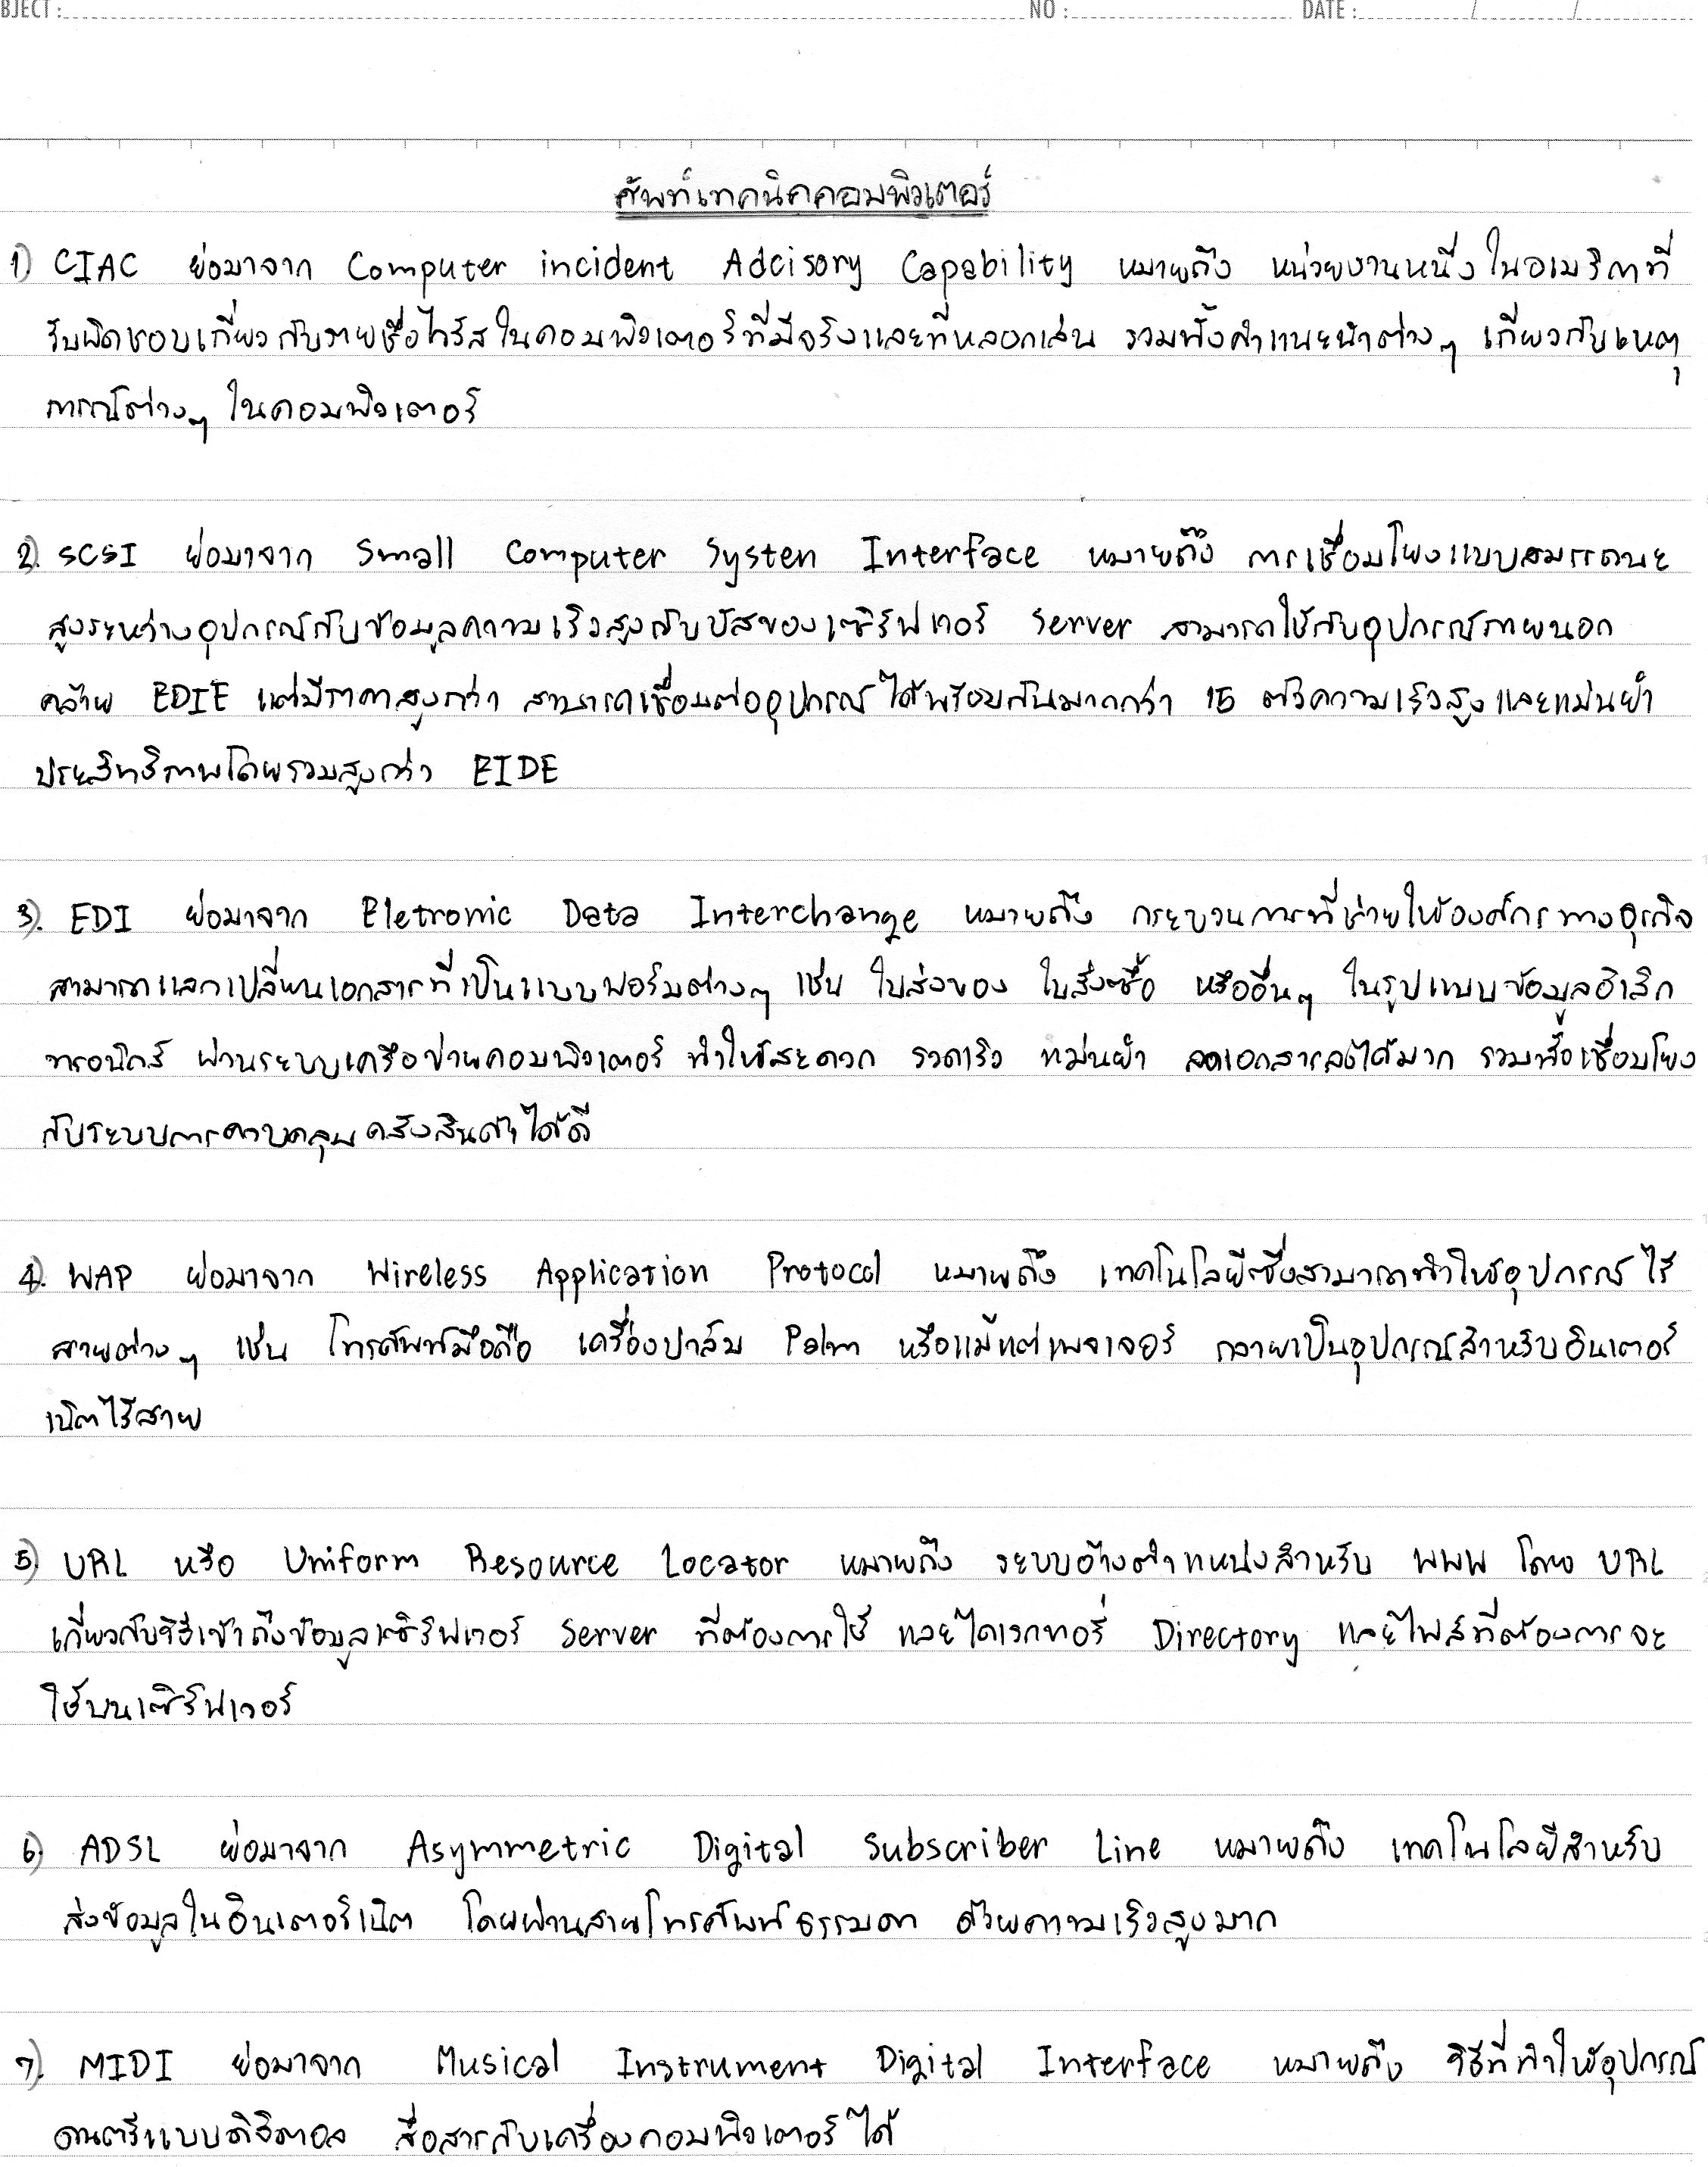 BJECT : NO : DATE : / /
ศัพท์เทคนิคคอมพิวเตอร์
1) CIAC ย่อมาจาก Computer incident Adcisory Capability หมายถึง หน่วยงานหนึ่งในอเมริกาที่
รับผิดชอบเกี่ยวกับรายชื่อไวรัสในคอมพิวเตอร์ที่มีจริงและที่หลอกเล่น รวมทั้งคำแนะนำต่างๆ เกี่ยวกับเหตุ
การณ์ต่างๆ ในคอมพิวเตอร์
2). SCSI ย่อมาจาก Small Computer Systen Interface หมายถึง การเชื่อมโยงแบบสมรรถนะ
สูงระหว่างอุปกรณ์กับข้อมูลความเร็วสูงกับบัสของเซิร์ฟเวอร์ Server สามารถใช้กับอุปกรณ์ภายนอก
คล้าย EDIE แต่มีราคาสูงกว่า สามารถเชื่อมต่ออุปกรณ์ได้พร้อมกันมากกว่า 15 ตัวความเร็วสูงและแม่นยำ
ประสิทธิภาพโดยรวมสูงกว่า EIDE
3). EDI ย่อมาจาก Eletronic Data Interchange หมายถึง กระบวนการที่ช่วยให้องค์กรทางธุรกิจ
สามารถแลกเปลี่ยนเอกสารที่เป็นแบบฟอร์มต่างๆ เช่น ใบส่งของ ใบสั่งซื้อ หรืออื่นๆ ในรูปแบบข้อมูลอิเล็ก
ทรอนิกส์ ผ่านระบบเครือข่ายคอมพิวเตอร์ ทำให้สะดวก รวดเร็ว แม่นยำ ลดเอกสารลงได้มาก รวมทั้งเชื่อมโยง
กับระบบการควบคลุมคลังสินค้าได้ดี
4). WAP ย่อมาจาก Wireless Application Protocol หมายถึง เทคโนโลยีซึ่งสามารถทำให้อุปกรณ์ไร้
สายต่างๆ เช่น โทรศัพท์มือถือ เครื่องปาล์ม Palm หรือแม้แต่เพจเจอร์ กลายเป็นอุปกรณ์สำหรับอินเตอร์
เน็ตไร้สาย
5) URL หรือ Uniform Resource Locator หมายถึง ระบบอ้างตำแหน่งสำหรับ WWW โดย URL
เกี่ยวกับวิธีเข้าถึงข้อมูลเซิร์ฟเวอร์ Server ที่ต้องการใช้ และไดเรกทอรี่ Directory และไฟล์ที่ต้องการจะ
ใช้บนเซิร์ฟเวอร์
6) ADSL ย่อมาจาก Asymmetric Digital Subscriber Line หมายถึง เทคโนโลยีสำหรับ
ส่งข้อมูลในอินเตอร์เน็ต โดยผ่านสายโทรศัพท์ธรรมดา ด้วยความเร็วสูงมาก
7). MIDI ย่อมาจาก Musical Instrument Digital Interface หมายถึง วิธีที่ทำให้อุปกรณ์
ดนตรีแบบดิจิตอล สื่อสารกับเครื่องคอมพิวเตอร์ได้